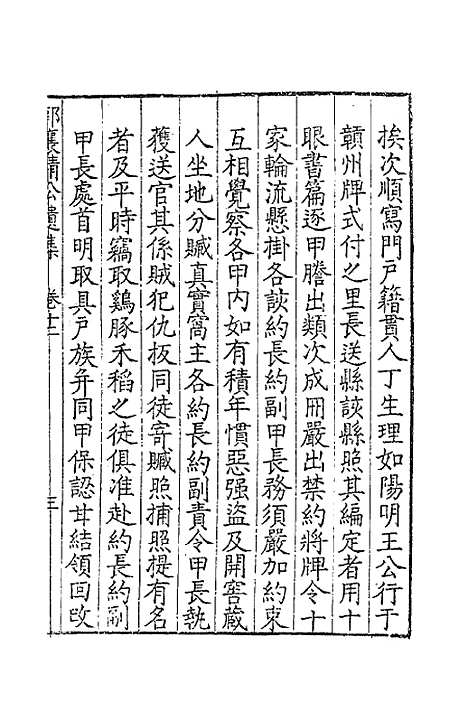 挨次順寫門戶籍貫人丁生理如陽明王公行于
贛州牌式付之里長送縣該縣照其編定者用十
眼書篇逐甲謄出類次成冊嚴出禁約將牌令十
家輪流懸掛各該約長約副甲長務須嚴加約束
互相覺察各甲内如有積年慣惡强盜及開窖藏
人坐地分贓真實窩主各約長約副責令甲長執
獲送官其係賊犯仇扳同徒寄贓照捕照提有名
者及平時竊取鷄豚禾稻之徒俱准赴約長約副
甲長處首明取具戶族弁同甲保認甘結領回改
襄靖公遺集 卷十二 三